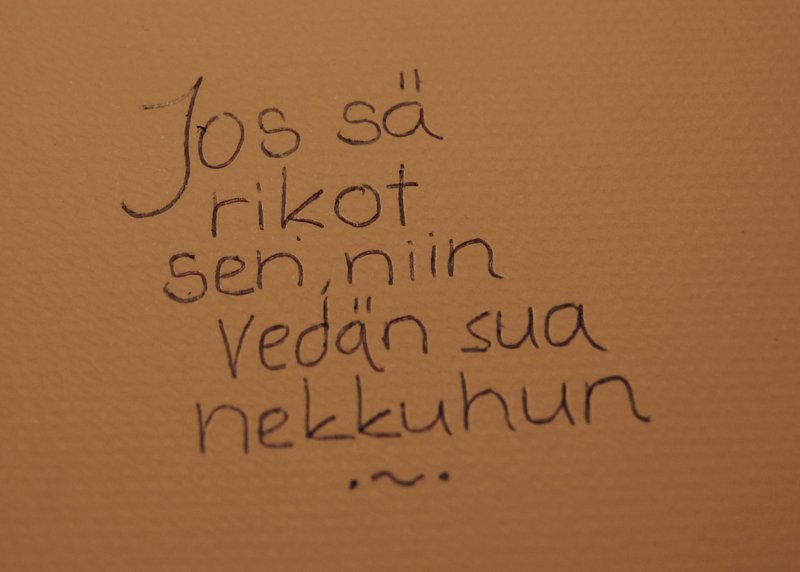 Jos sä
rikot
sen, niin
vedän sua
nekkuhun